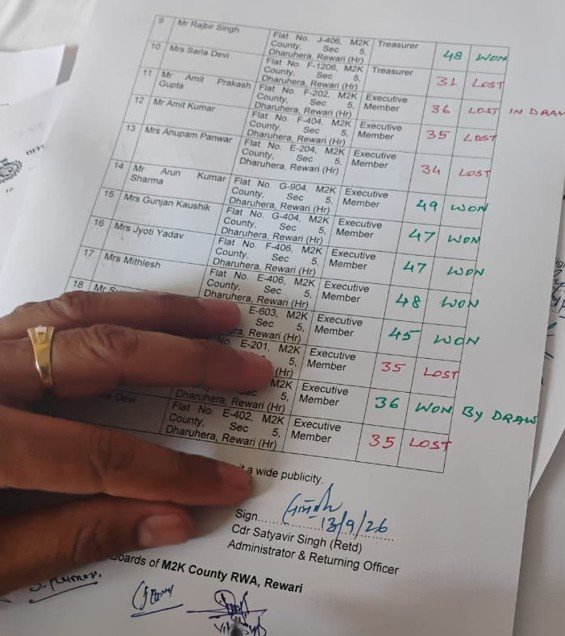 9 Mr Rajbir Singh Flat No. J-406, M2K Treasurer 48 WON
County, Sec 5,
Dharuhera, Rewari (Hr)
10 Mrs Sarla Devi Flat No. F-1206, M2K Treasurer 31 LOST
County, Sec 5,
Dharuhera, Rewari (Hr)
11 Mr Amit Prakash Flat No. F-202, M2K Executive 36 LOST IN DRAW
Gupta County, Sec 5, Member
Dharuhera, Rewari (Hr)
12 Mr Amit Kumar Flat No. F-404, M2K Executive 35 LOST
County, Sec 5, Member
Dharuhera, Rewari (Hr)
13 Mrs Anupam Panwar Flat No. E-204, M2K Executive 34 LOST
County, Sec 5, Member
Dharuhera, Rewari (Hr)
14 Mr Arun Kumar Flat No. G-904, M2K Executive 49 WON
Sharma County, Sec 5, Member
Dharuhera, Rewari (Hr)
15 Mrs Gunjan Kaushik Flat No. G-404, M2K Executive 47 WON
County, Sec 5, Member
Dharuhera, Rewari (Hr)
16 Mrs Jyoti Yadav Flat No. F-406, M2K Executive 47 WON
County, Sec 5, Member
Dharuhera, Rewari (Hr)
17 Mrs Mithlesh Flat No. E-406, M2K Executive 48 WON
County, Sec 5, Member
Dharuhera, Rewari (Hr)
18 Mr E-603, M2K Executive 45 WON
Sec 5, Member
Rewari (Hr)
E-201, M2K Executive 35 LOST
5, Member
(Hr)
M2K Executive 36 WON BY DRAW
5, Member
Dharuhera, Rewari (Hr)
Devi Flat No. E-402, M2K Executive 35 LOST
County, Sec 5, Member
Dharuhera, Rewari (Hr)
a wide publicity.
Sign
13/9/26
Cdr Satyavir Singh (Retd)
Administrator & Returning Officer
Boards of M2K County RWA, Rewari